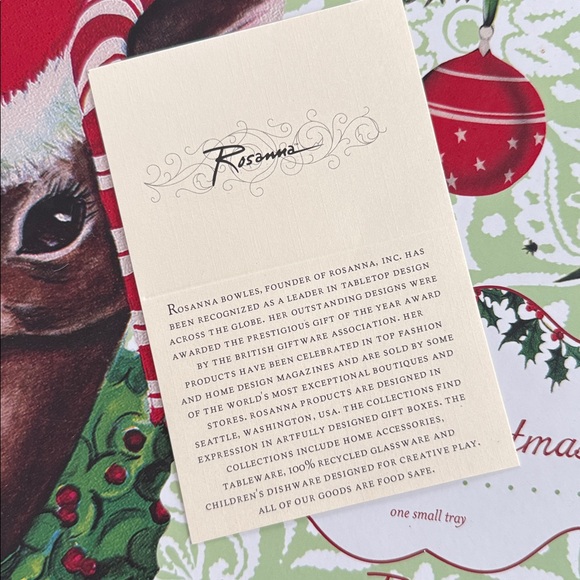 Rosanna
ROSANNA BOWLES, FOUNDER OF ROSANNA, INC. HAS
BEEN RECOGNIZED AS A LEADER IN TABLETOP DESIGN
ACROSS THE GLOBE. HER OUTSTANDING DESIGNS WERE
AWARDED THE PRESTIGIOUS GIFT OF THE YEAR AWARD
BY THE BRITISH GIFTWARE ASSOCIATION. HER
PRODUCTS HAVE BEEN CELEBRATED IN TOP FASHION
AND HOME DESIGN MAGAZINES AND ARE SOLD BY SOME
OF THE WORLD'S MOST EXCEPTIONAL BOUTIQUES AND
STORES. ROSANNA PRODUCTS ARE DESIGNED IN
SEATTLE, WASHINGTON, USA. THE COLLECTIONS FIND
EXPRESSION IN ARTFULLY DESIGNED GIFT BOXES. THE
COLLECTIONS INCLUDE HOME ACCESSORIES,
TABLEWARE, 100% RECYCLED GLASSWARE AND
CHILDREN'S DISHWARE DESIGNED FOR CREATIVE PLAY.
ALL OF OUR GOODS ARE FOOD SAFE.
tmas
one small tray